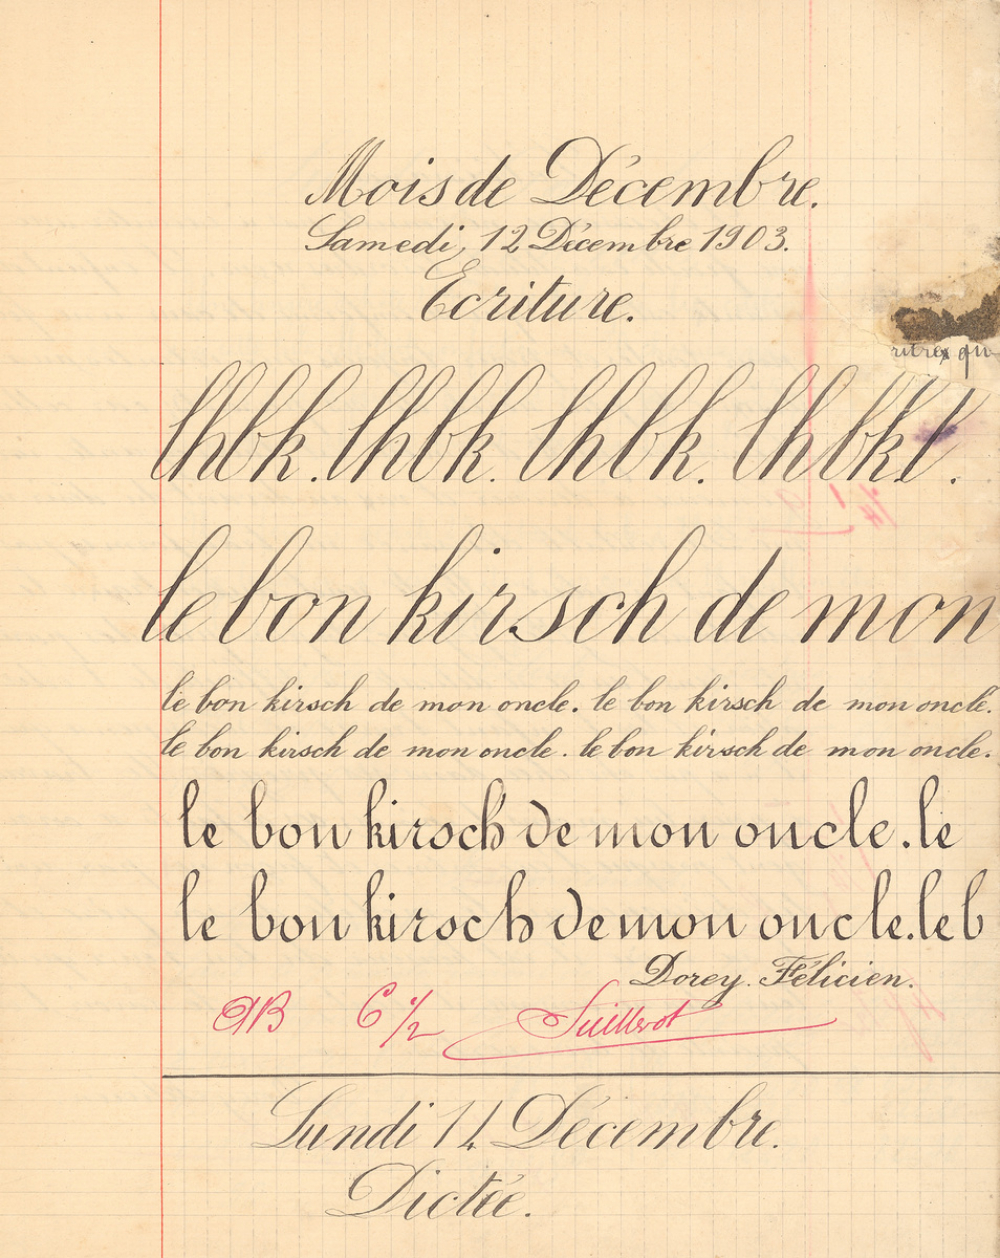 Mois de Décembre.
Samedi, 12 Décembre 1903.
Ecriture.
lhbk. lhbk. lhbk. lhbkl.
le bon kirsch de mon
le bon kirsch de mon oncle. le bon kirsch de mon oncle.
le bon kirsch de mon oncle. le bon kirsch de mon oncle.
le bon kirsch de mon oncle. le
le bon kirsch de mon oncle. le b
Dorey Félicien.
AB 6 1/2
Lundi 14 Décembre.
Dictée.